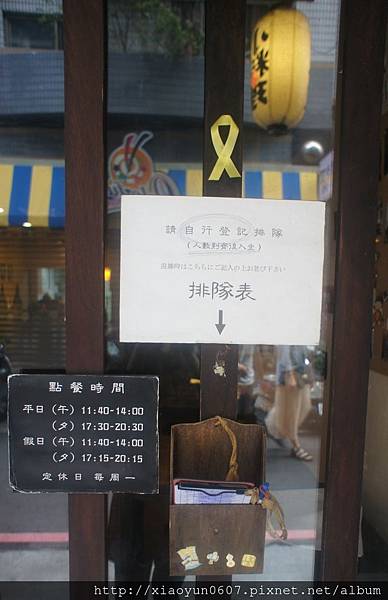 請自行登記排隊
(人數到齊後入坐)
混雑時はこちらにご記入の上お並び下さい
排隊表
點餐時間
平日(午) 11:40-14:00
(夕) 17:30-20:30
假日(午) 11:40-14:00
(夕) 17:15-20:15
定休日 每周一
http://xiaoyun0607.pixnet.net/album